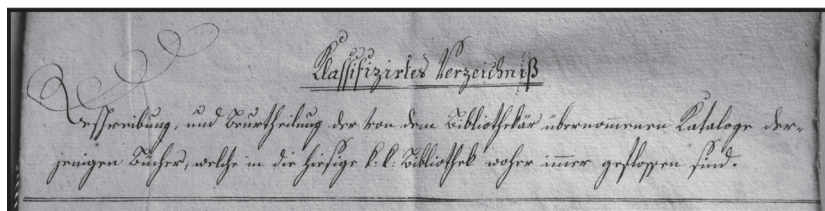 Klassifizirtes Verzeichniß
Beschreibung, und Beurtheilung der von dem Bibliothekär übernommenen Kataloge der-
jenigen Bücher, welche in die hiesige k. k: Bibliothek woher immer geflossen sind.